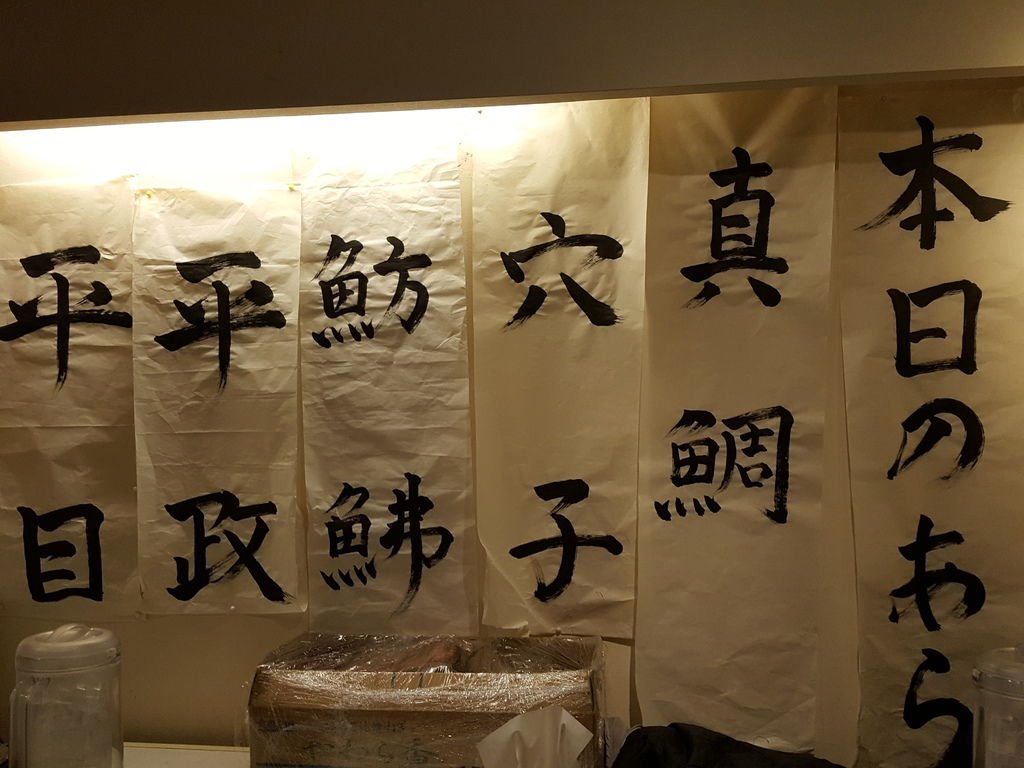 本日のあら
真鯛
穴子
魴鮄
平政
平目